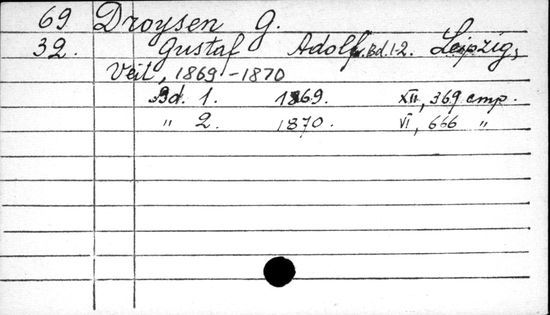 69 Droysen G.
32. Gustaf Adolf. Bd. 1-2. Leipzig,
Veit, 1869-1870
Bd. 1. 1869. XII, 369 cmp.
" 2. 1870. VI, 666 "